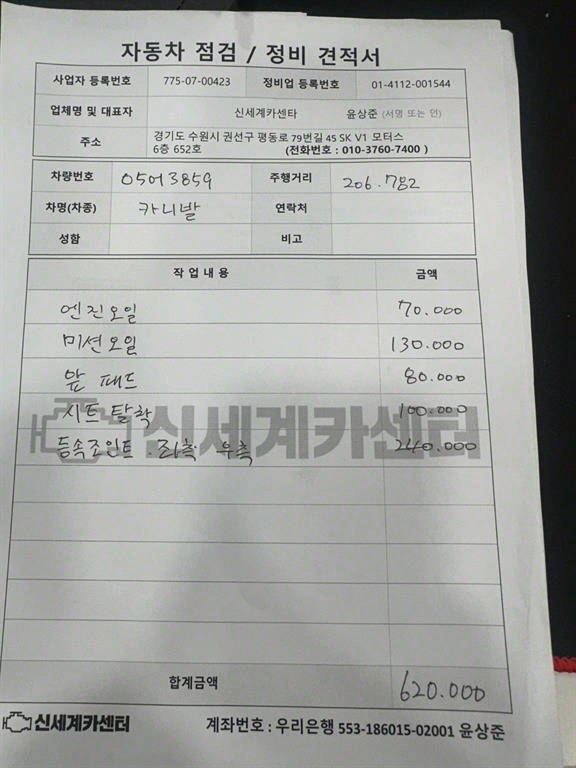 자동차 점검 / 정비 견적서
사업자 등록번호 775-07-00423 정비업 등록번호 01-4112-001544
업체명 및 대표자 신세계카센타 윤상준 (서명 또는 인)
주소 경기도 수원시 권선구 평동로 79번길 45 SK V1 모터스
6층 652호 (전화번호 : 010-3760-7400 )
차량번호 05어3859 주행거리 206.782
차명(차종) 카니발 연락처
성함 비고
작 업 내 용 금액
엔진오일 70.000
미션오일 130.000
앞 패드 80.000
시트탈착 100.000
신세계카센터
등속조인트. 좌측 우측 240.000
합계금액 620.000
신세계카센터 계좌번호 : 우리은행 553-186015-02001 윤상준